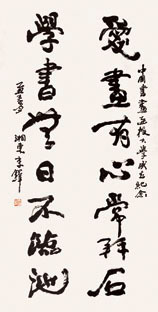 中國書畫函授大學成立紀念
愛畫有心常拜石
學書無日不臨池
湘東李鐸